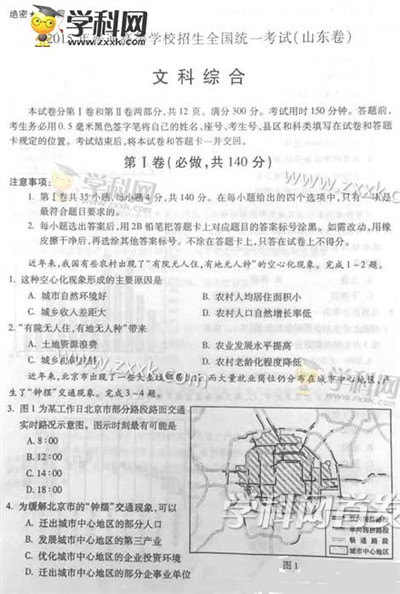 绝密★
学科网
www.zxxk.com
学校招生全国统一考试(山东卷)
文科综合
本试卷分第Ⅰ卷和第Ⅱ卷两部分,共12页。满分300分。考试用时150分钟。答题前,
考生务必用0.5毫米黑色签字笔将自己的姓名、座号、考生号、县区和科类填写在试卷和答题
卡规定的位置。考试结束后,将本试卷和答题卡一并交回。
第Ⅰ卷(必做,共140分)
注意事项:
1. 第Ⅰ卷共35小题,每小题4分,共140分。在每小题给出的四个选项中,只有一项是
最符合题目要求的。
2. 每小题选出答案后,用2B铅笔把答题卡上对应题目的答案标号涂黑。如需改动,用橡
皮擦干净后,再选涂其他答案标号。不涂在答题卡上,只答在试卷上不得分。
近年来,我国有些农村出现了“有院无人住,有地无人种”的空心化现象。完成1~2题。
1. 这种空心化现象形成的主要原因是
A. 城市自然环境好 B. 农村人均居住面积小
C. 城乡收入差距大 D. 农村人口自然增长率低
2. “有院无人住,有地无人种”带来
A. 土地资源浪费 B. 农业发展水平提高
C. 城乡 D. 农村老龄化程度降低
www.zxxk.com
学科网
近年来,北京市出现了一些大 而大量就业岗位仍分布在城市中心地区,产
生了“钟摆”交通现象。完成3~4题。
3. 图1为某工作日北京市部分路段路面交通
实时路况示意图。图示时刻最有可能是
A. 8:00
B. 12:00
C. 14:00
D. 18:00
4. 为缓解北京市的“钟摆”交通现象,可以
A. 迁出城市中心地区的部分人口
B. 发展城市中心地区的第三产业
C. 优化城市中心地区的企业投资环境
D. 迁出城市中心地区的部分企事业单位
畅通路段
城市中心地区
图1
学科网首发